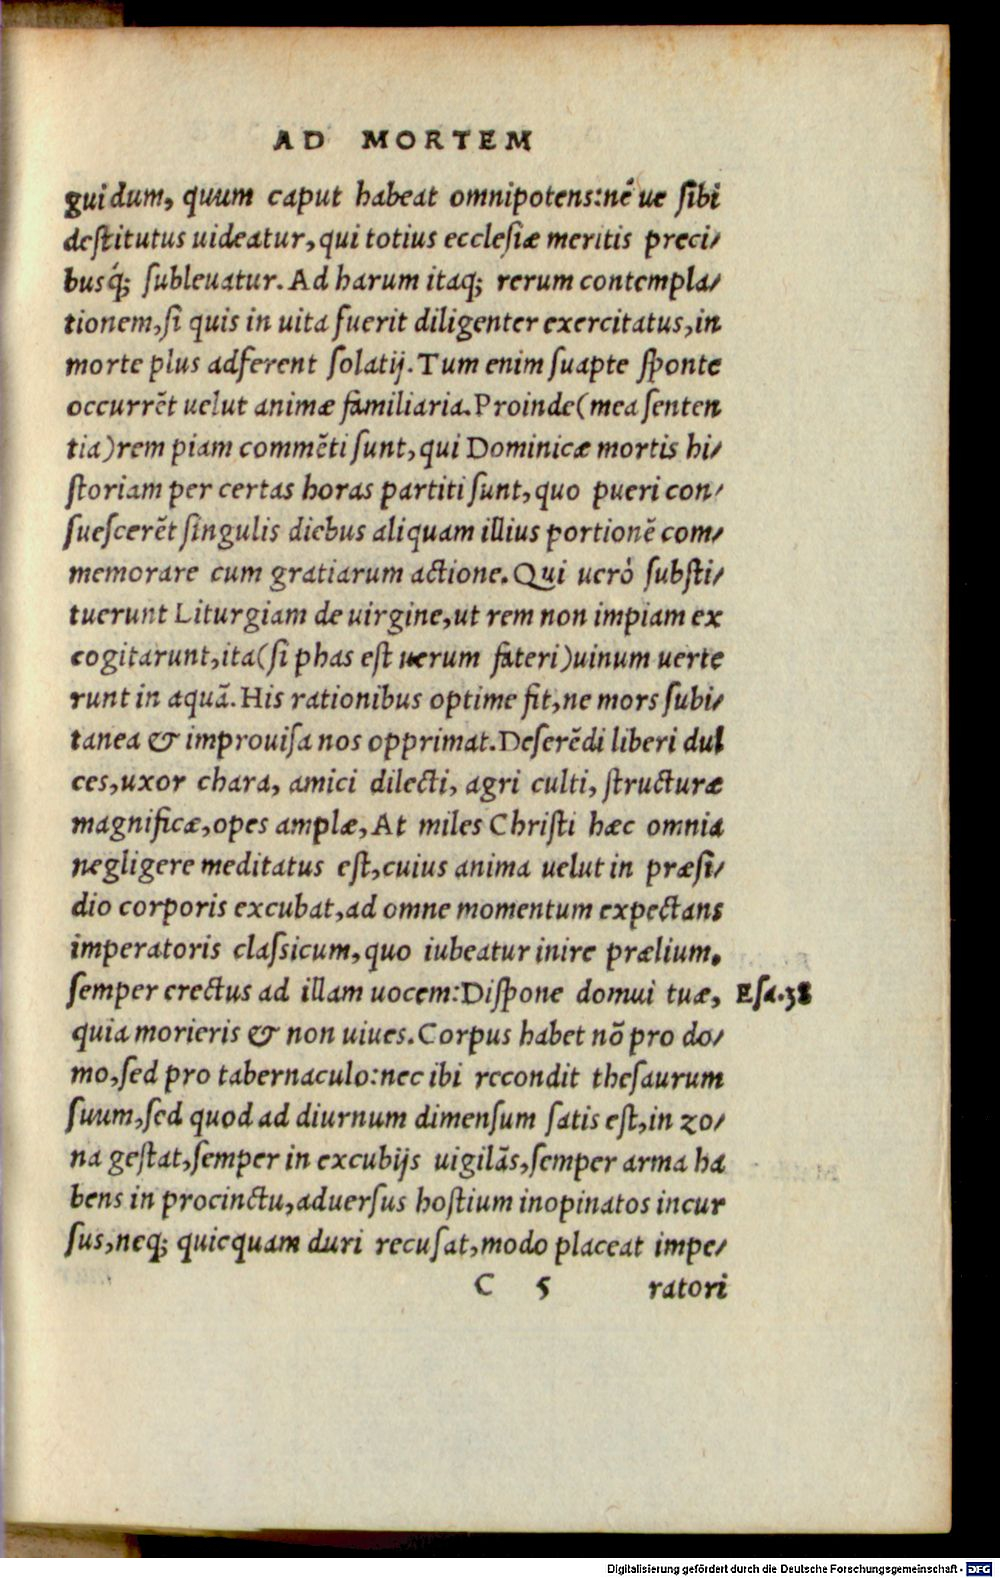 AD MORTEM
guidum, quum caput habeat omnipotens:né ue ſibi
deſtitutus uideatur, qui totius eccleſiæ meritis preci/
busq́; ſubleuatur. Ad harum itaq; rerum contempla/
tionem,ſi quis in uita fuerit diligenter exercitatus,in
morte plus adferent ſolatij. Tum enim ſuapte ſponte
occurrẽt uelut animæ familiaria. Proinde(mea ſenten
tia)rem piam commẽti ſunt, qui Dominicæ mortis hi/
ſtoriam per certas horas partiti ſunt, quo pueri con/
ſueſcerẽt ſingulis diebus aliquam illius portionẽ com/
memorare cum gratiarum actione. Qui uerò ſubſti/
tuerunt Liturgiam de uirgine,ut rem non impiam ex
cogitarunt,ita(ſi phas eſt uerum fateri)uinum uerte
runt in aquã. His rationibus optime fit, ne mors ſubi/
tanea & improuiſa nos opprimat. Deſerẽdi liberi dul
ces,uxor chara, amici dilecti, agri culti, ſtructuræ
magnificæ,opes amplæ, At miles Chriſti hæc omnia
negligere meditatus eſt,cuius anima uelut in præſi/
dio corporis excubat,ad omne momentum expectans
imperatoris claſsicum, quo iubeatur inire prælium.
ſemper erectus ad illam uocem:Diſpone domui tuæ, Eſa.38
quia morieris & non uiues. Corpus habet nõ pro do/
mo,ſed pro tabernaculo:nec ibi recondit theſaurum
ſuum,ſed quod ad diurnum dimenſum ſatis eſt,in zo/
na geſtat,ſemper in excubijs uigilãs,ſemper arma ha
bens in procinctu,aduerſus hoſtium inopinatos incur
ſus,neq; quicquam duri recuſat,modo placeat impe/
C 5 ratori
Digitalisierung gefördert durch die Deutsche Forschungsgemeinschaft - DFG